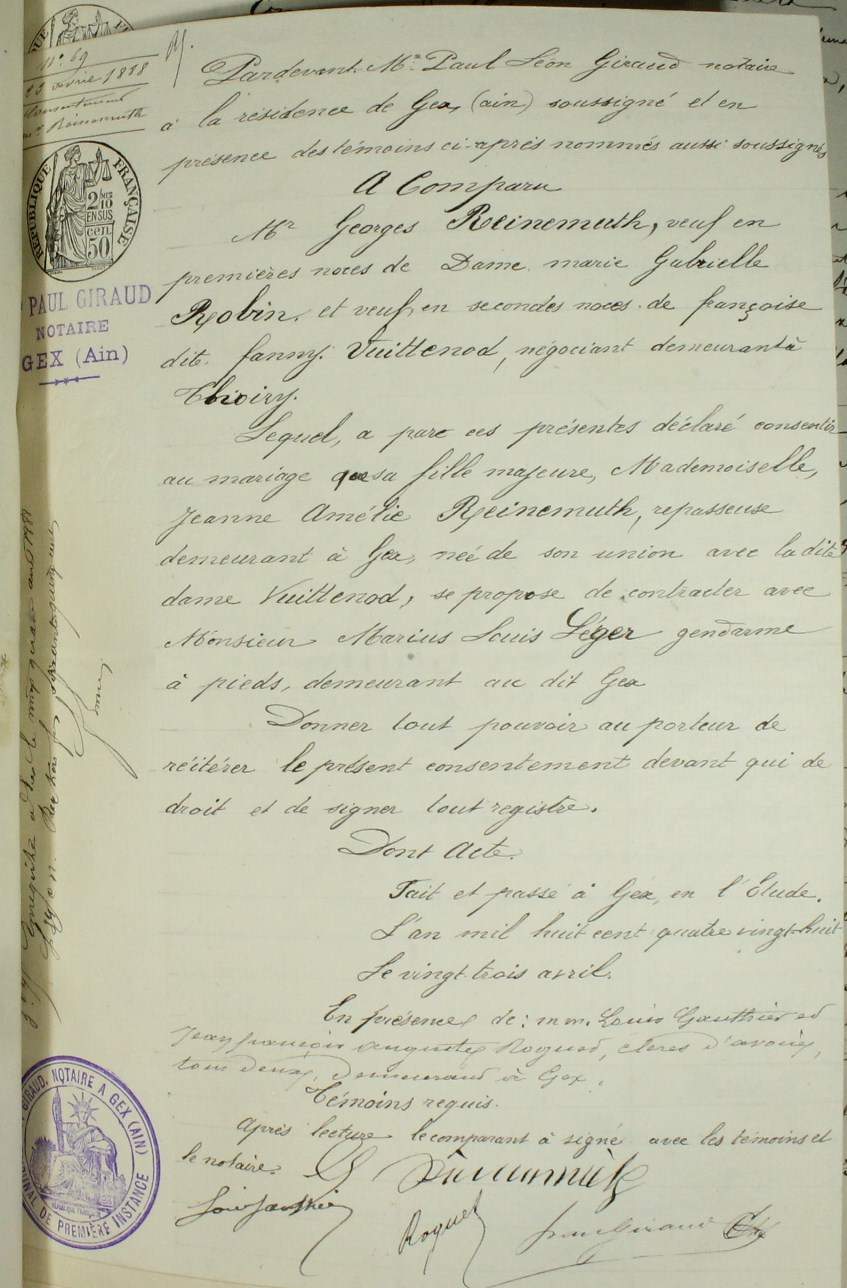 N° 69
23 avril 1888
Consentement
Reinemuth
RÉPUBLIQUE FRANÇAISE
2/10
EN SUS
50 CEN.
PAUL GIRAUD
NOTAIRE
GEX (Ain)
Pardevant Me Paul Léon Giraud notaire
à la résidence de Gex, (ain) soussigné et en
présence des témoins ci-après nommés aussi soussignés
A Comparu
Mr Georges Reinemuth, veuf en
premières noces de Dame marie Gabrielle
Robin, et veuf, en secondes noces de françoise
dite fanny Vuittenod, négociant demeurant à
Thoiry.
Lequel, a parc ces présentes déclaré consentir
au mariage que sa fille majeure, Mademoiselle,
Jeanne Amélie Reinemuth, repasseuse
demeurant à Gex, née de son union avec la dite
dame Vuittenod, se propose de contracter avec
Monsieur Marius Louis Léger gendarme
à pieds, demeurant au dit Gex
Donner tout pouvoir au porteur de
réitérer le présent consentement devant qui de
droit et de signer tout registre.
Dont Acte.
Fait et passé à Gex, en l'Etude.
L'an mil huit cent quatre vingt-huit
Le vingt trois avril.
En présence de: mm. Louis Gauthier et
Jean françois auguste Roguet, clercs d'avoués,
tous deux, demeurant à Gex.
Témoins requis.
Après lecture le comparant à signé avec les témoins et
le notaire.
Roguet
GIRAUD, NOTAIRE A GEX (AIN)
TRIBUNAL DE PREMIÈRE INSTANCE
Enregistré à Gex le